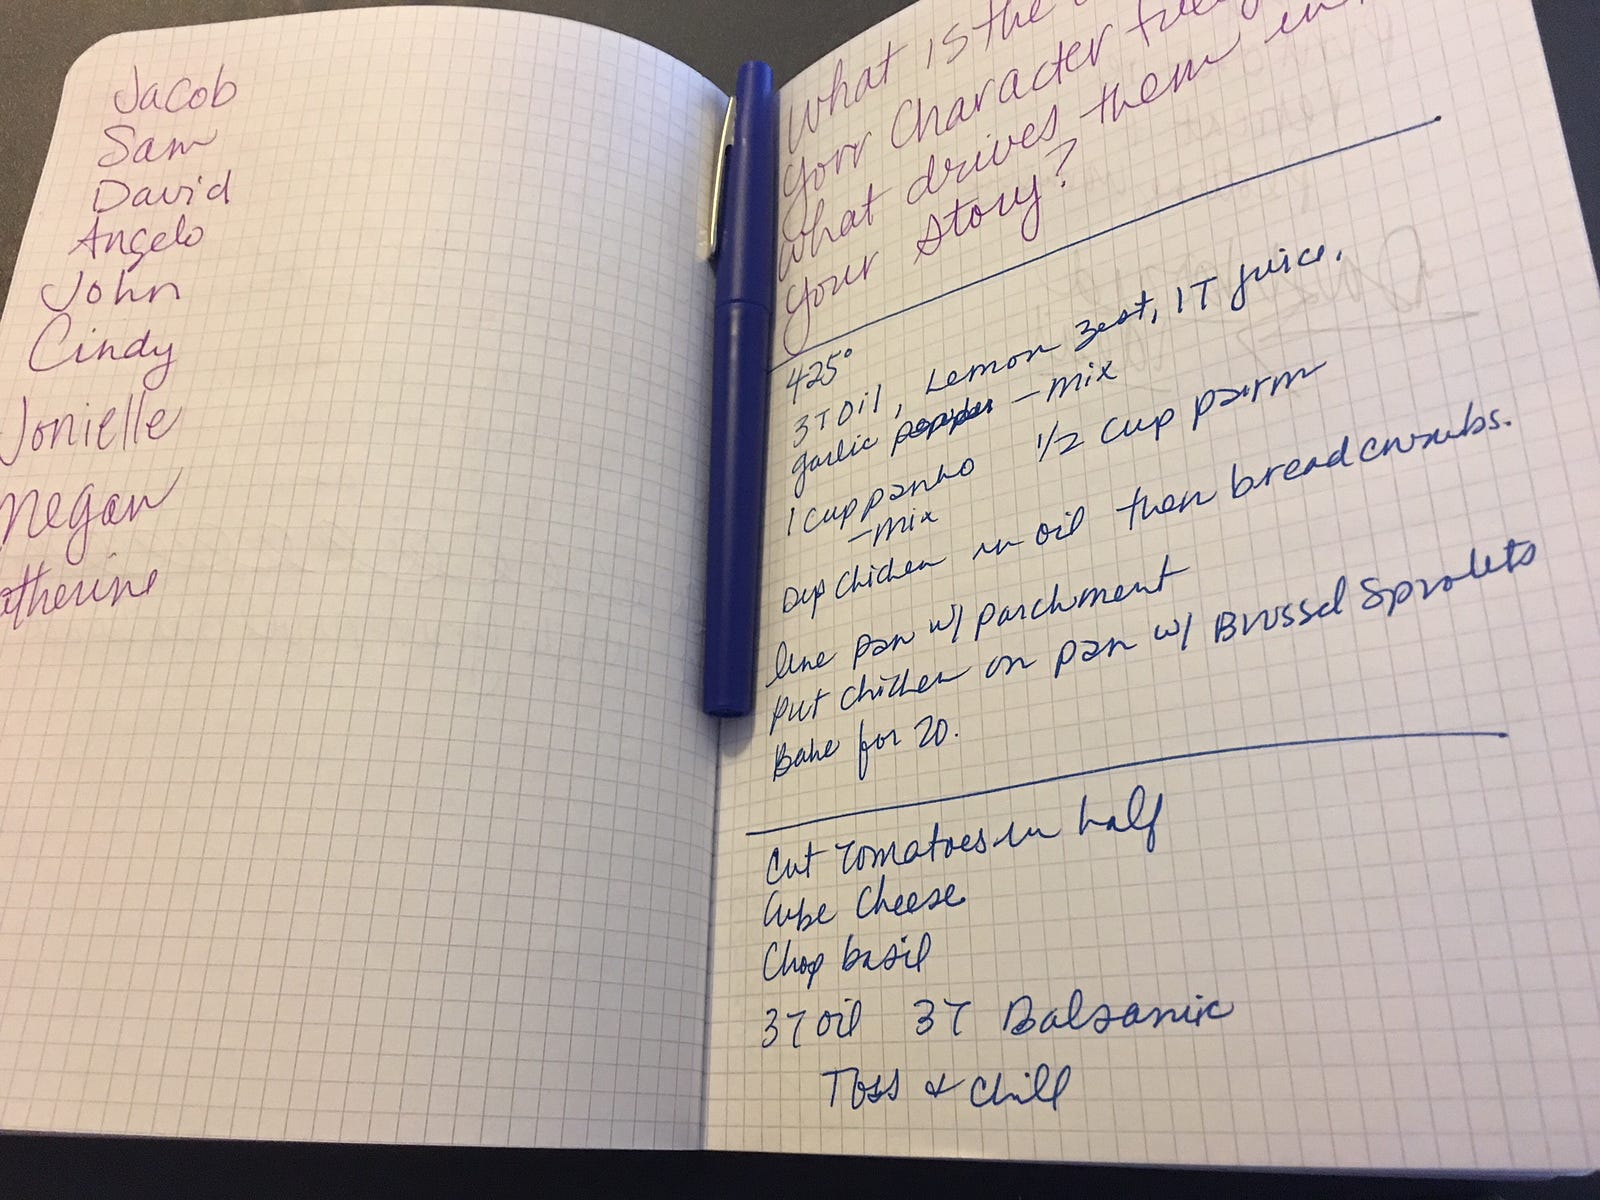 Jacob
Sam
David
Angelo
John
Cindy
Jonielle
Megan
atherine
What is the
your Character
what drives them in
your story?
425°
3T oil, Lemon Zest, 1T juice,
garlic pepper - mix
1 cup panko 1/2 cup parm
- mix
Dip chicken in oil then breadcrumbs.
line pan w/ parchment
put chicken on pan w/ Brussel Sprouts
Bake for 20.
Cut tomatoes in half
Cube Cheese
Chop basil
3T oil 3T Balsamic
Toss & Chill